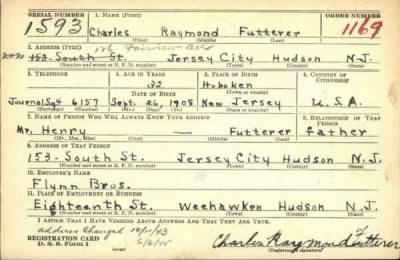 SERIAL NUMBER 1. NAME (Print) ORDER NUMBER
1593 Charles Raymond Futterer 1169
(First) (Middle) (Last)
2. ADDRESS (Print) 126 Fairview Ave
153-South St. Jersey City Hudson N.J.
(Number and street or R. F. D. number) (Town) (County) (State)
3. TELEPHONE 4. AGE IN YEARS 5. PLACE OF BIRTH 6. COUNTRY OF CITIZENSHIP
32 Hoboken
(Town or county)
Journal Sq4 6157 Sept. 26, 1908 New Jersey U.S.A.
(Exchange) (Number) (Mo.) (Day) (Yr.) (State or country)
7. NAME OF PERSON WHO WILL ALWAYS KNOW YOUR ADDRESS 8. RELATIONSHIP OF THAT PERSON
Mr. Henry — Futterer father
(Mr., Mrs., Miss) (First) (Middle) (Last)
9. ADDRESS OF THAT PERSON
153-South St. Jersey City Hudson N.J.
(Number and street or R. F. D. number) (Town) (County) (State)
10. EMPLOYER'S NAME
Flynn Bros.
11. PLACE OF EMPLOYMENT OR BUSINESS
Eighteenth St. Weehawken Hudson N.J.
(Number and street or R. F. D. number) (Town) (County) (State)
I AFFIRM THAT I HAVE VERIFIED ABOVE ANSWERS AND THAT THEY ARE TRUE.
address changed 10/11/43
REGISTRATION CARD
D. S. S. Form 1 Charles Raymond Futterer
(Registrant's signature)